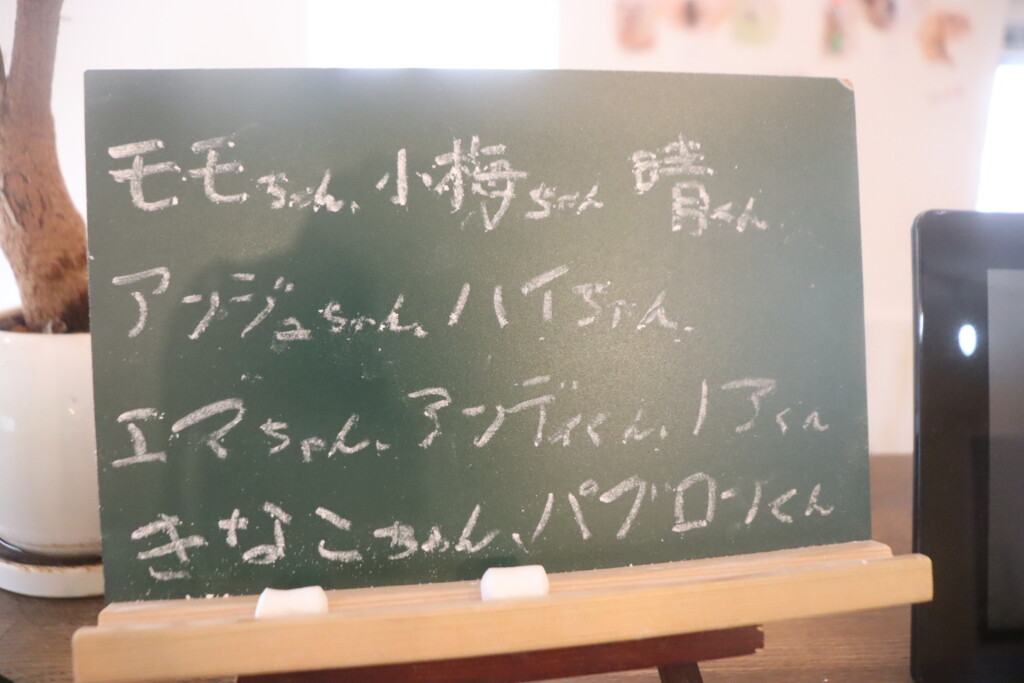 モモちゃん、小梅ちゃん 晴くん
アンジュちゃん、ハイちゃん、
エマちゃん、アンディくん、ノアくん
きなこちゃん、パブロンくん